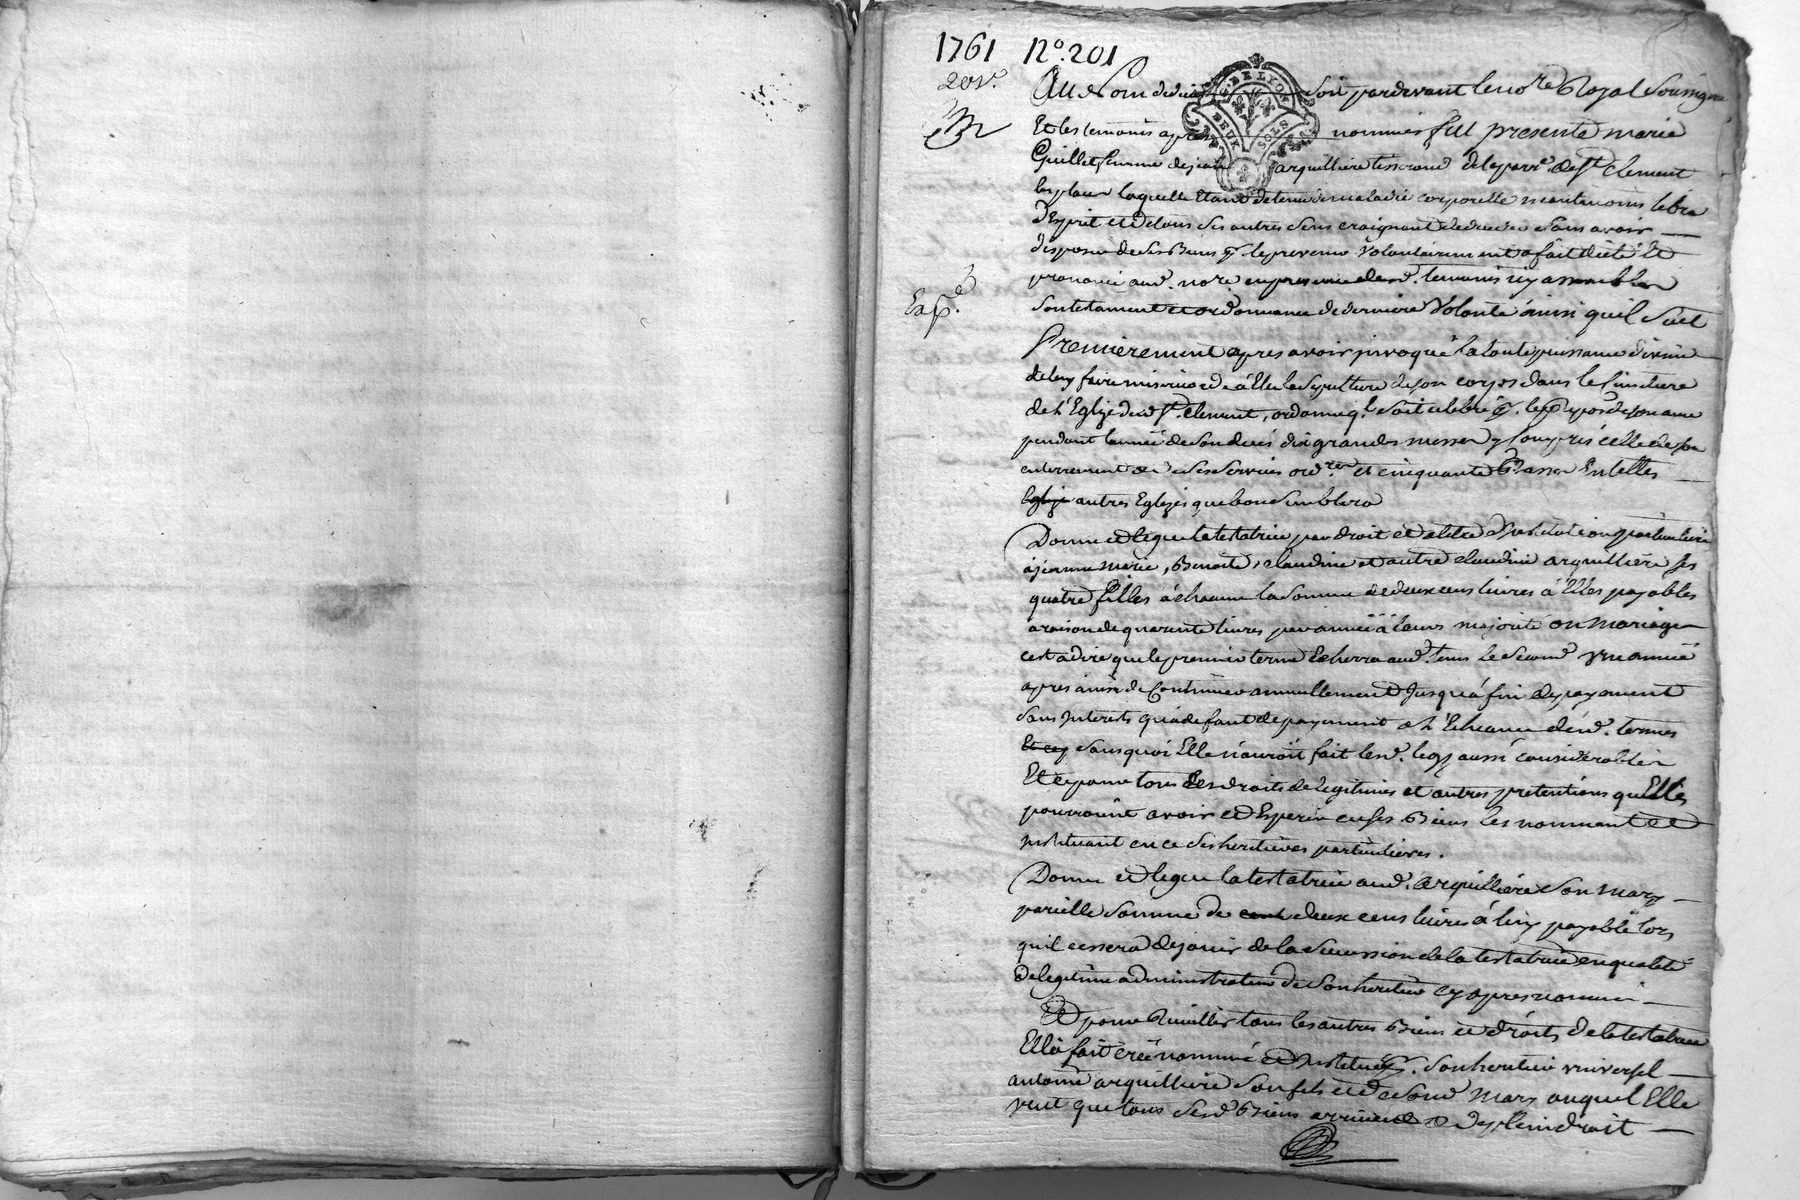 1761 N.° 201
20 s.
Au Nom de dieu soit pardevant le no.re Royal Soussigné
Et les temoins apres nommés fut presente marie
Guillet femme de jean arquilliere tisserand de la parr.e de S.t Clement
les places laquelle Etant detenue de maladie corporelle neantmoins libre
d'Esprit et de tous ses autres sens craignant de deceder sans avoir
disposé de ses Biens p.r le prevenir volontairement a fait dicté Et
prononcé aud. no.re en presence desd. temoins icy assemblés
Exp.é
son testament et ordonnance de derniere Volonté ainsi quil suit
Premierement apres avoir invoqué la toute puissance divine
de luy faire misericorde a Elû la Sepulture de son corps dans le Cimetiere
de l'Eglize dud. S.t Clement, ordonne q.l soit celebré p.r le repos de son ame
pendant l'année de son decés dix grandes messes y compris celle de son
enterrement de ses services ord.res et cinquante Basses En telles
Eglize autres Eglizes que bon semblera
Donne et legue la testatrice par droit et a titre d'institution particuliere
à jeanne marie, Benoite, claudine et autre claudine arquilliere ses
quatre filles à chacune la somme de deux cens livres à Elles payables
a raison de quarente livres par année à leurs majorité ou mariage
c'est a dire que le premier terme Echerra aud. tems le second vne année
apres ainsi de Continuer annuellement Jusqu'à fin de payement
sans Interests qu'a defaut de payement a l'Echeance desd. termes
Et ce sans quoi Elle n'auroit fait lesd. legs aussi considerables
Et ce pour tous les droits de legitimes et autres pretentions qu'Elles
pourroint avoir et Esperer en ses Biens les nommant et
Instituant en ce ses heritieres particulieres.
Donne et legue la testatrice aud. arquilliere son mary
pareille somme de cent deux cens livres à luy payable lors
qu'il cessera de jouir de la succession de la testatrice en qualité
de legitime administrateur de son heritier cy apres nommé
Et pour Recueillir tous les autres Biens et droits de la testatrice
Elle a fait créé nommé et Institué p.r son heritier vniversel
antoine arquilliere son fils et de sond. mary auquel Elle
veut que tous sesd. Biens arrivent de plein droit